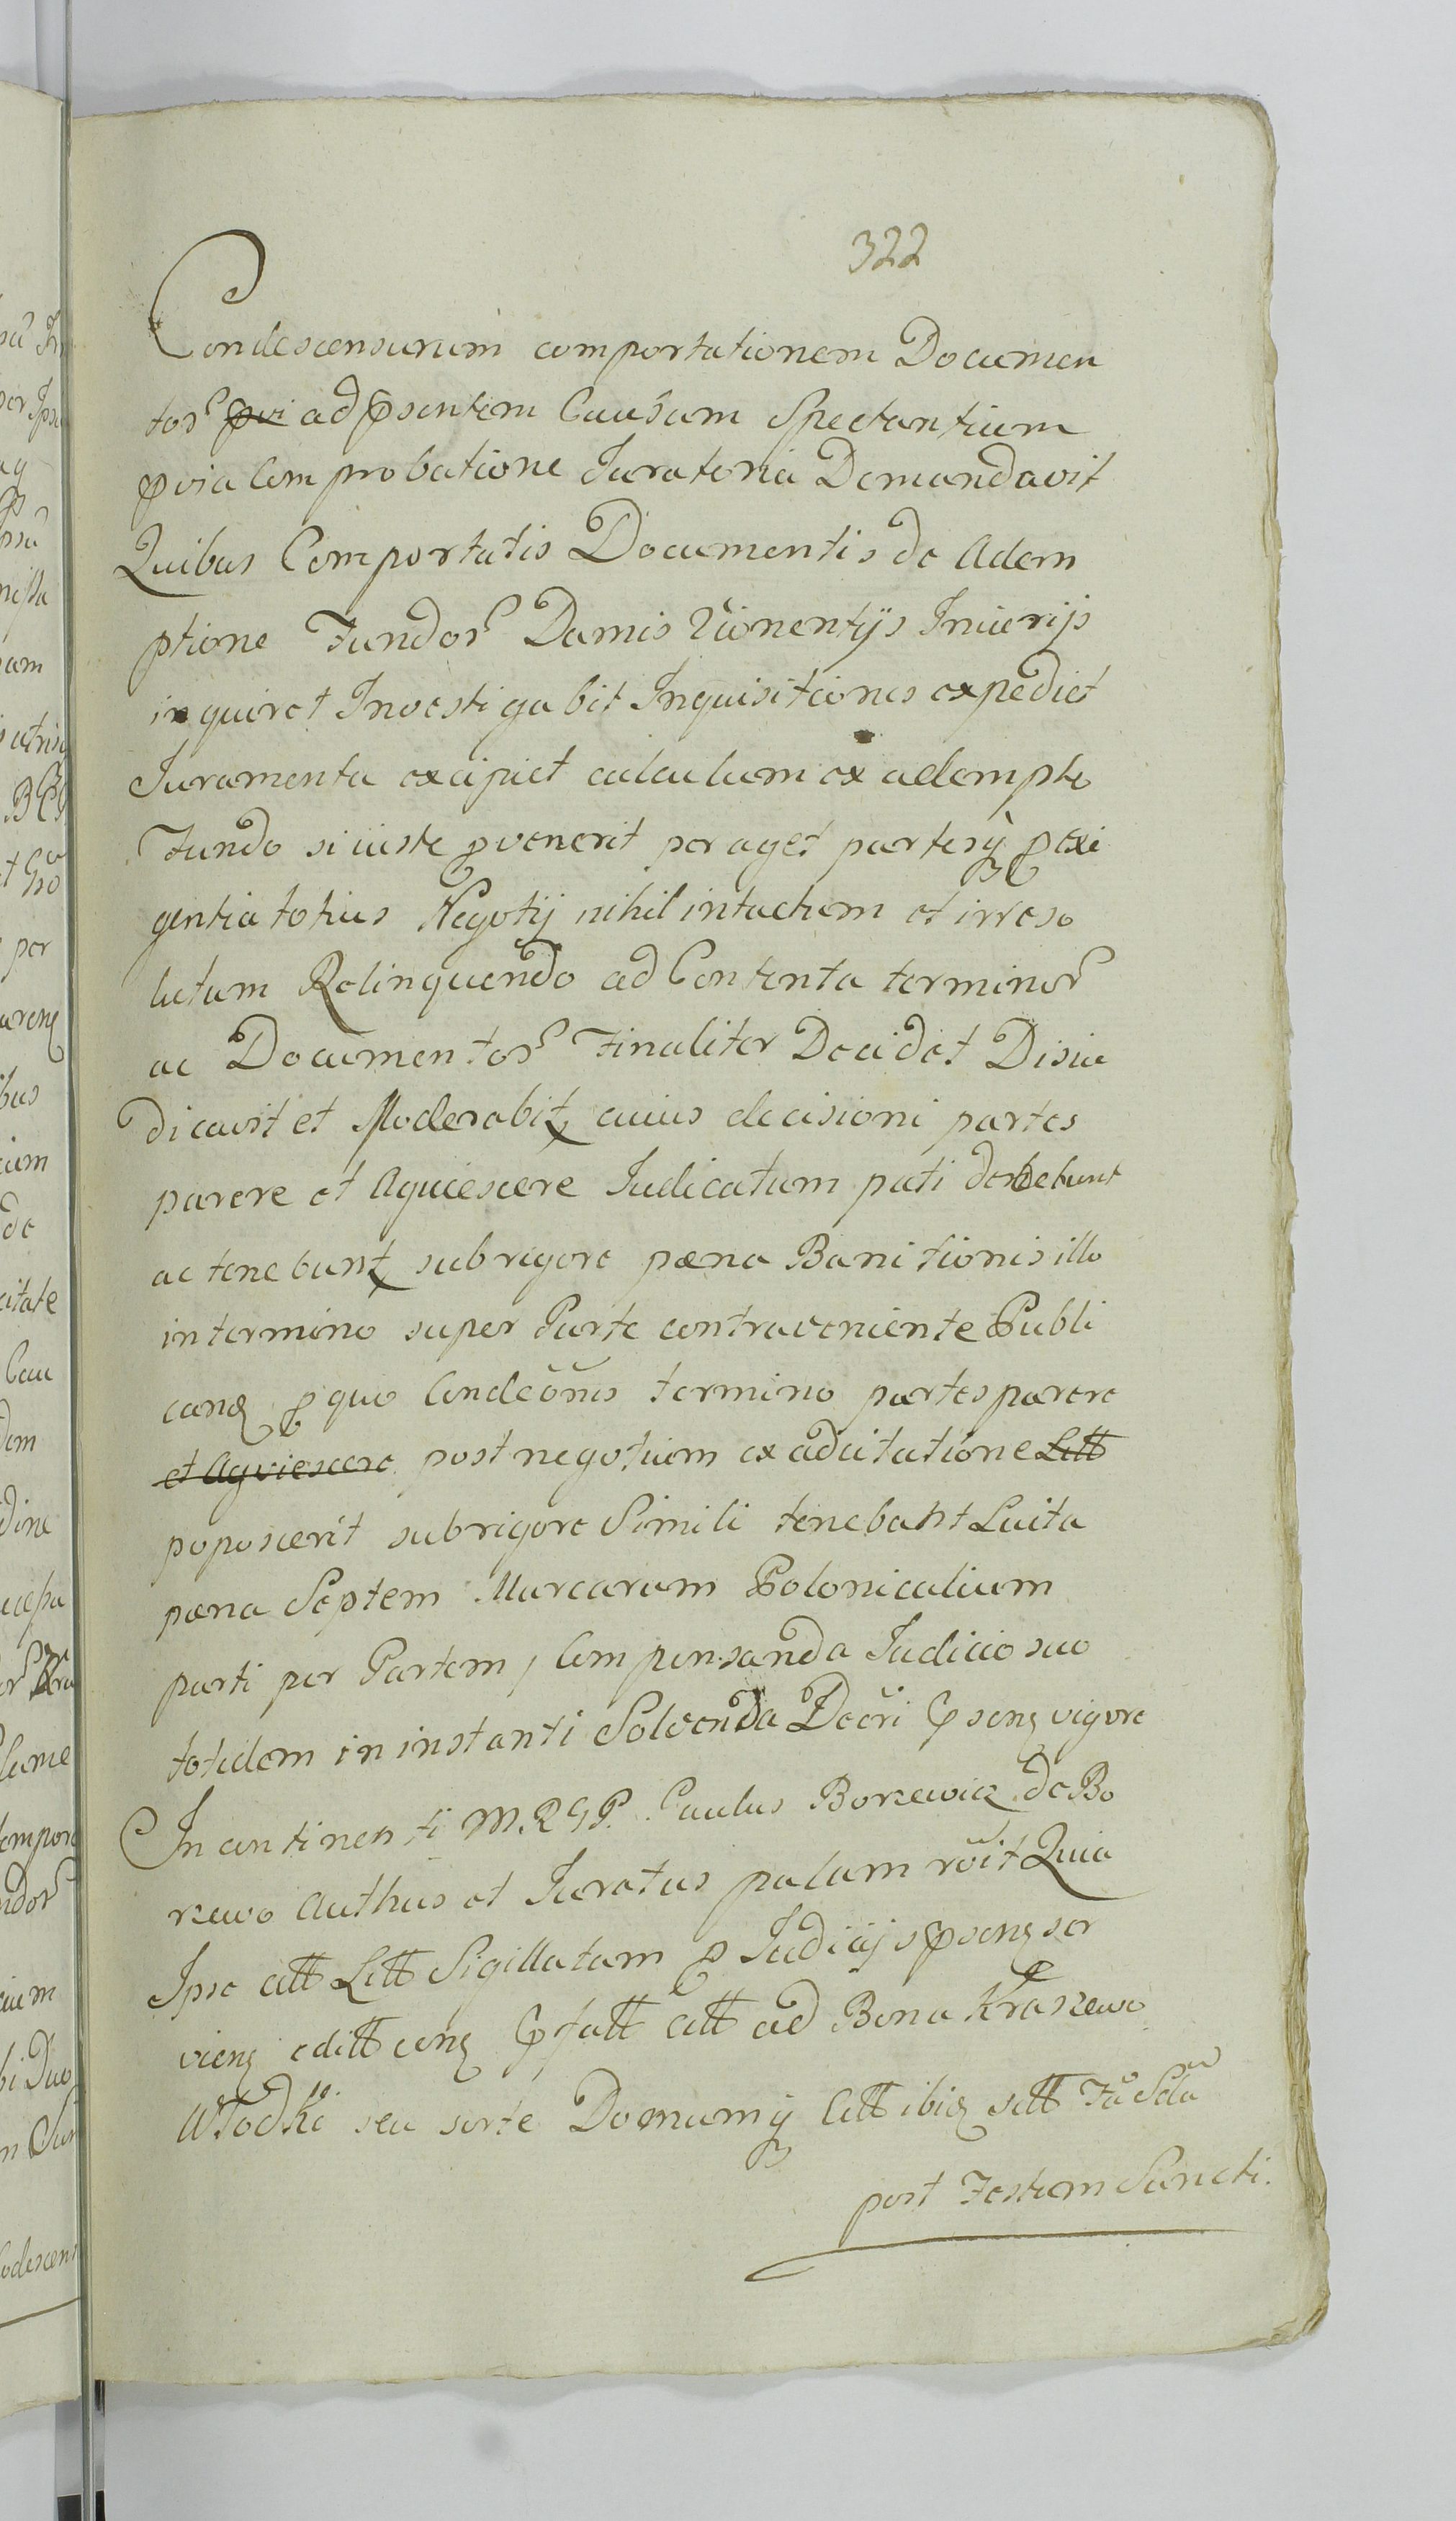 322
Condescensurum comportationem Documen
tor ad psentem Causam Spectantium
pvia Comprobatione Juratoria Demandavit
Quibus Comportatis Documentis de Adem
ptione Fundor Damis Violentijs Iniurijs
inquiret Investigabit Inquisitiones expediet
Juramenta excipiet calculum ex adempto
Fundo si iuste pvenerit peraget partesq pexi
gentia totius Negotij nihil intactum et irreso
lutum Relinquendo ad Contenta terminor
ac Documentor Finaliter Decidet Disiu
dicavit et Moderabit cuius decisioni partes
parere et Aquiescere Judicatum pati debebunt
ac tenebunt sub rigore pæna Banitionis illo
in termino super Parte contraveniente Publi
cand p quo Condeonis termino partes parere
et Aqviescere post negotium ex adcitatione Litt
poposcerit sub rigore Simili tenebant Luita
pæna Septem Marcarum Polonicalium
parti per Partem, Compensanda Judicio suo
totidem in instanti Solvenda Decri psen vigore
In continenti M. R G P. Paulus Borzewicz de Bo
rzewo Authus et Juratus palam roit Quia
Ipse citt Litt Sigillatam p Judicij psen ser
vien editt con P fatt citt ad Bona Kraszewo
Włodki seu sorte Domumq Citt ibid sitt Fa Sda
post Festum Sancti.